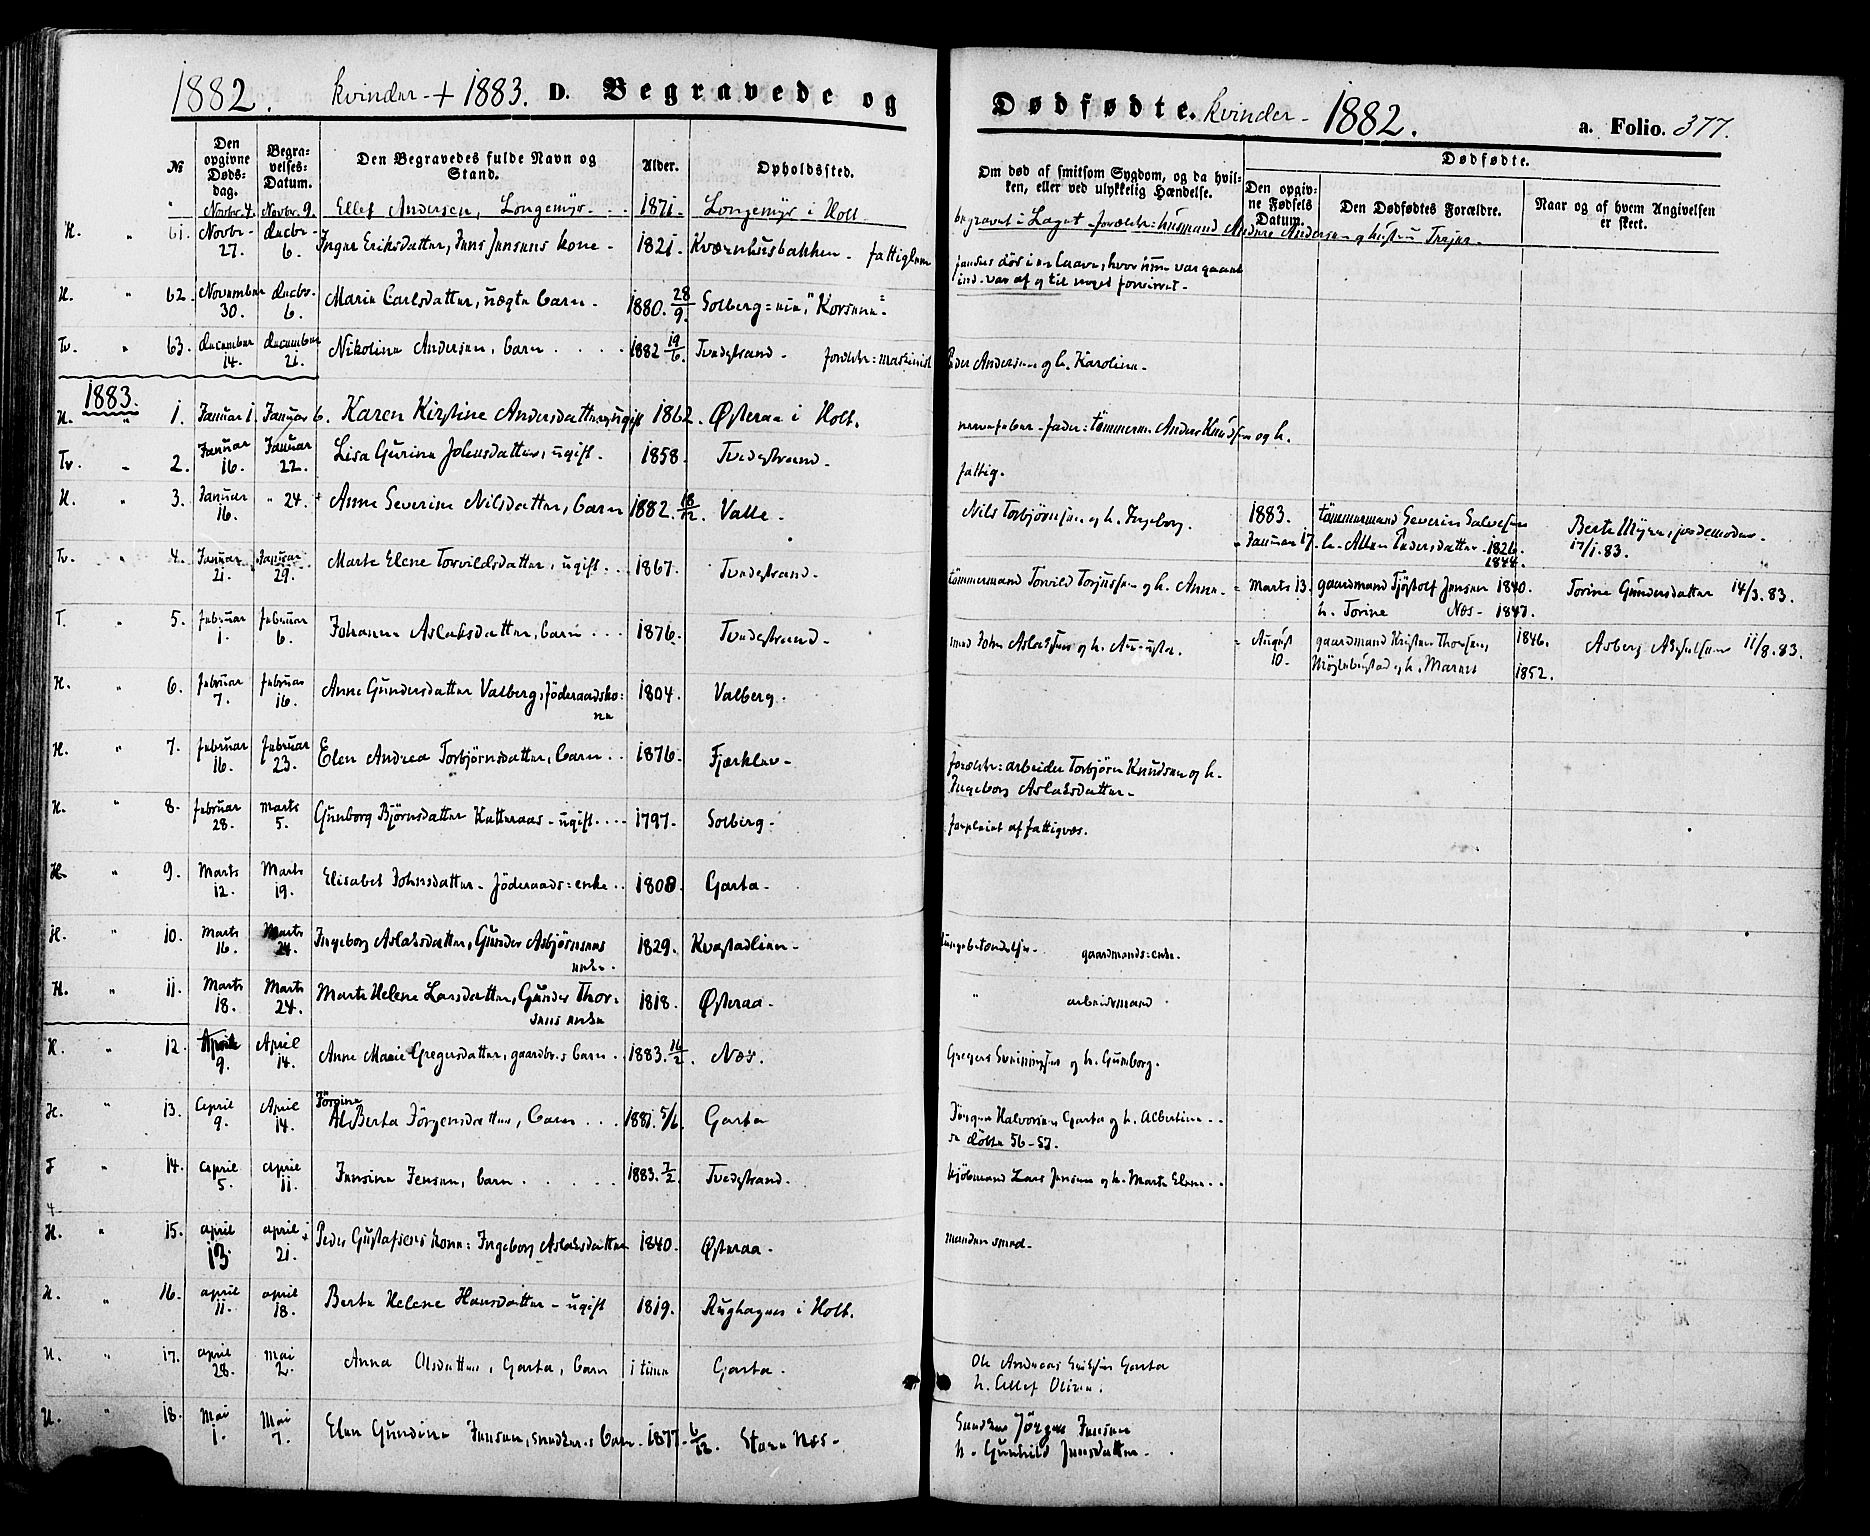 1882. kvinder + 1883. D. Begravede og
No
Den opgivne Døds-dag.
Begra-velses-Datum.
Den Begravedes fulde Navn og Stand.
Alder.
Opholdssted.
" Novbr. 4. Novbr. 9. Ellef Andersen, Longemyr 1871. Longemyr i Holt.
H. " 61. Novbr. 27. Decbr. 6. Inger Eriksdatter, Jens Jensens kone - 1821. Kværnhusbakken - fattiglem
H. " 62. November 30. Decbr. 6. Marie Carlsdatter, uægte barn - 1880. 28/9. Solberg
Tv. " 63. December 14. December 21. Nikoline Andersen, barn 1882 19/6. Tvedestrand - forældr: maskinist
1883.
H. " 1. Januar 1. Januar 6. Karen Kirstine Andersdatter, ugift 1862. Østeraa i Holt.
Tv. " 2. Januar 16. Januar 22. Lisa Gurine Johnsdatter, ugift. 1858. Tvedestrand.
H. " 3. Januar 16. " 24. Anne Severine Nilsdatter, barn 1882. 18/12. Valle.
Tv. " 4. Januar 21. Januar 29. Marte Elene Torvildsdatter, ugift. 1867. Tvedestrand.
T. " 5. Februar 1. Februar 6. Johanne Aslaksdatter, barn 1876. Tvedestrand.
H. " 6. Februar 7. Februar 16. Anne Gundersdatter Valberg, Föderaadsko:ne 1804. Valberg.
H. " 7. Februar 16. Februar 23. Elen Andrea Torbjörnsdatter, barn 1876. Fjærklev.
H. " 8. Februar 28. Marts 5. Gunborg Björnsdatter Katteraas - ugift 1797. Solberg.
H. " 9. Marts 12. Marts 19. Elisabet Johnsdatter - Föderaads:enke 1808. Garta.
H. " 10. Marts 16. Marts 24. Ingeborg Aslaksdatter, Gunder Asbjörnsens enke. 1829. Kvastadlien.
H. " 11. Marts 18. Marts 24. Marte Helene Larsdatter, Gunder Thorsens enke 1818. Østeraa.
H. " 12. April 9. April 14. Anne Marie Gregersdatter, gaardbr.s barn 1883. 16/2. Næs.
H. " 13. April 9. April 14. Jörgine Alberta Jörgensdatter, barn 1881. 5/6. Garta
T " 14. April 5. April 11. Jensine Jensen, barn 1883. 7/2. Tvedestrand.
H. " 15. April 13. April 21. Peder Gustafsens kone: Ingeborg Aslaksdatter 1840. Østeraa.
H. " 16. April 11. April 18. Berte Helene Hansdatter - ugift 1819. Rughagen i Holt.
H. " 17. April 28. Mai 2. Anna Olsdatter, Garta, barn 1 time Garta.
H. " 18. Mai 1. Mai 7. Elen Gundine Jensen, snedker.s barn 1877. 6/12. Store Næs.
Dødfødte. kvinder - 1882. a. Folio. 377.
Om død af smitsom Sygdom, og da hvil-ken, eller ved ulykkelig Hændelse.
Dødfødte.
Den opgiv-ne Fødsels Datum.
Den Dødfødtes Forældre.
Naar og af hvem Angivelsen er skeet.
begravet i Laget - forældr: husmand Anders Andersen og hustru
fandtes död i en laave, hvor hun var gaaet ind - var af og til noget forvirret.
Peder Andersen og h. Karoline.
nervefeber - fader: tömmerm. Anders Knudsen og h.
fattig.
Nils Torbjörnsen og h. Ingeborg.
1883. Januar 17. tömmermand Severin Salvesen 1826. h. Pedersdatter 1844. Berte Myren, jordemoder. 17/1.83.
tömmermand Torvild Torjussen og h. Anne.
Marts 13. gaardmand Tjöstolf Jensen 1840. h. Torine Næs - 1847. Torine Gundersdatter 14/3.83.
smed John Aslaksen og h. Augusta.
August 10. gaardmand Kristen Thorsen, 1846. og h. Maren 1852. 11/8.83.
forældr: arbeider Torbjörn Knudsen og h. Ingeborg Aslaksdatter.
forpleiet af fattigvæs.
lungebetændelse. gaardmands:enke.
" arbeidsmand
Gregers Sveinungsen og h. Gunborg.
Jörgen Halvorsen Garta og h. Albertine
se döbte 56-57.
kjöbmand Lars Jensen og h. Marte Elene
manden smed.
Ole Andreas Eriksen Garta
h. Ellef Olivia.
Snedker Jörgen Jensen
h. Gunhild Jensdatter.